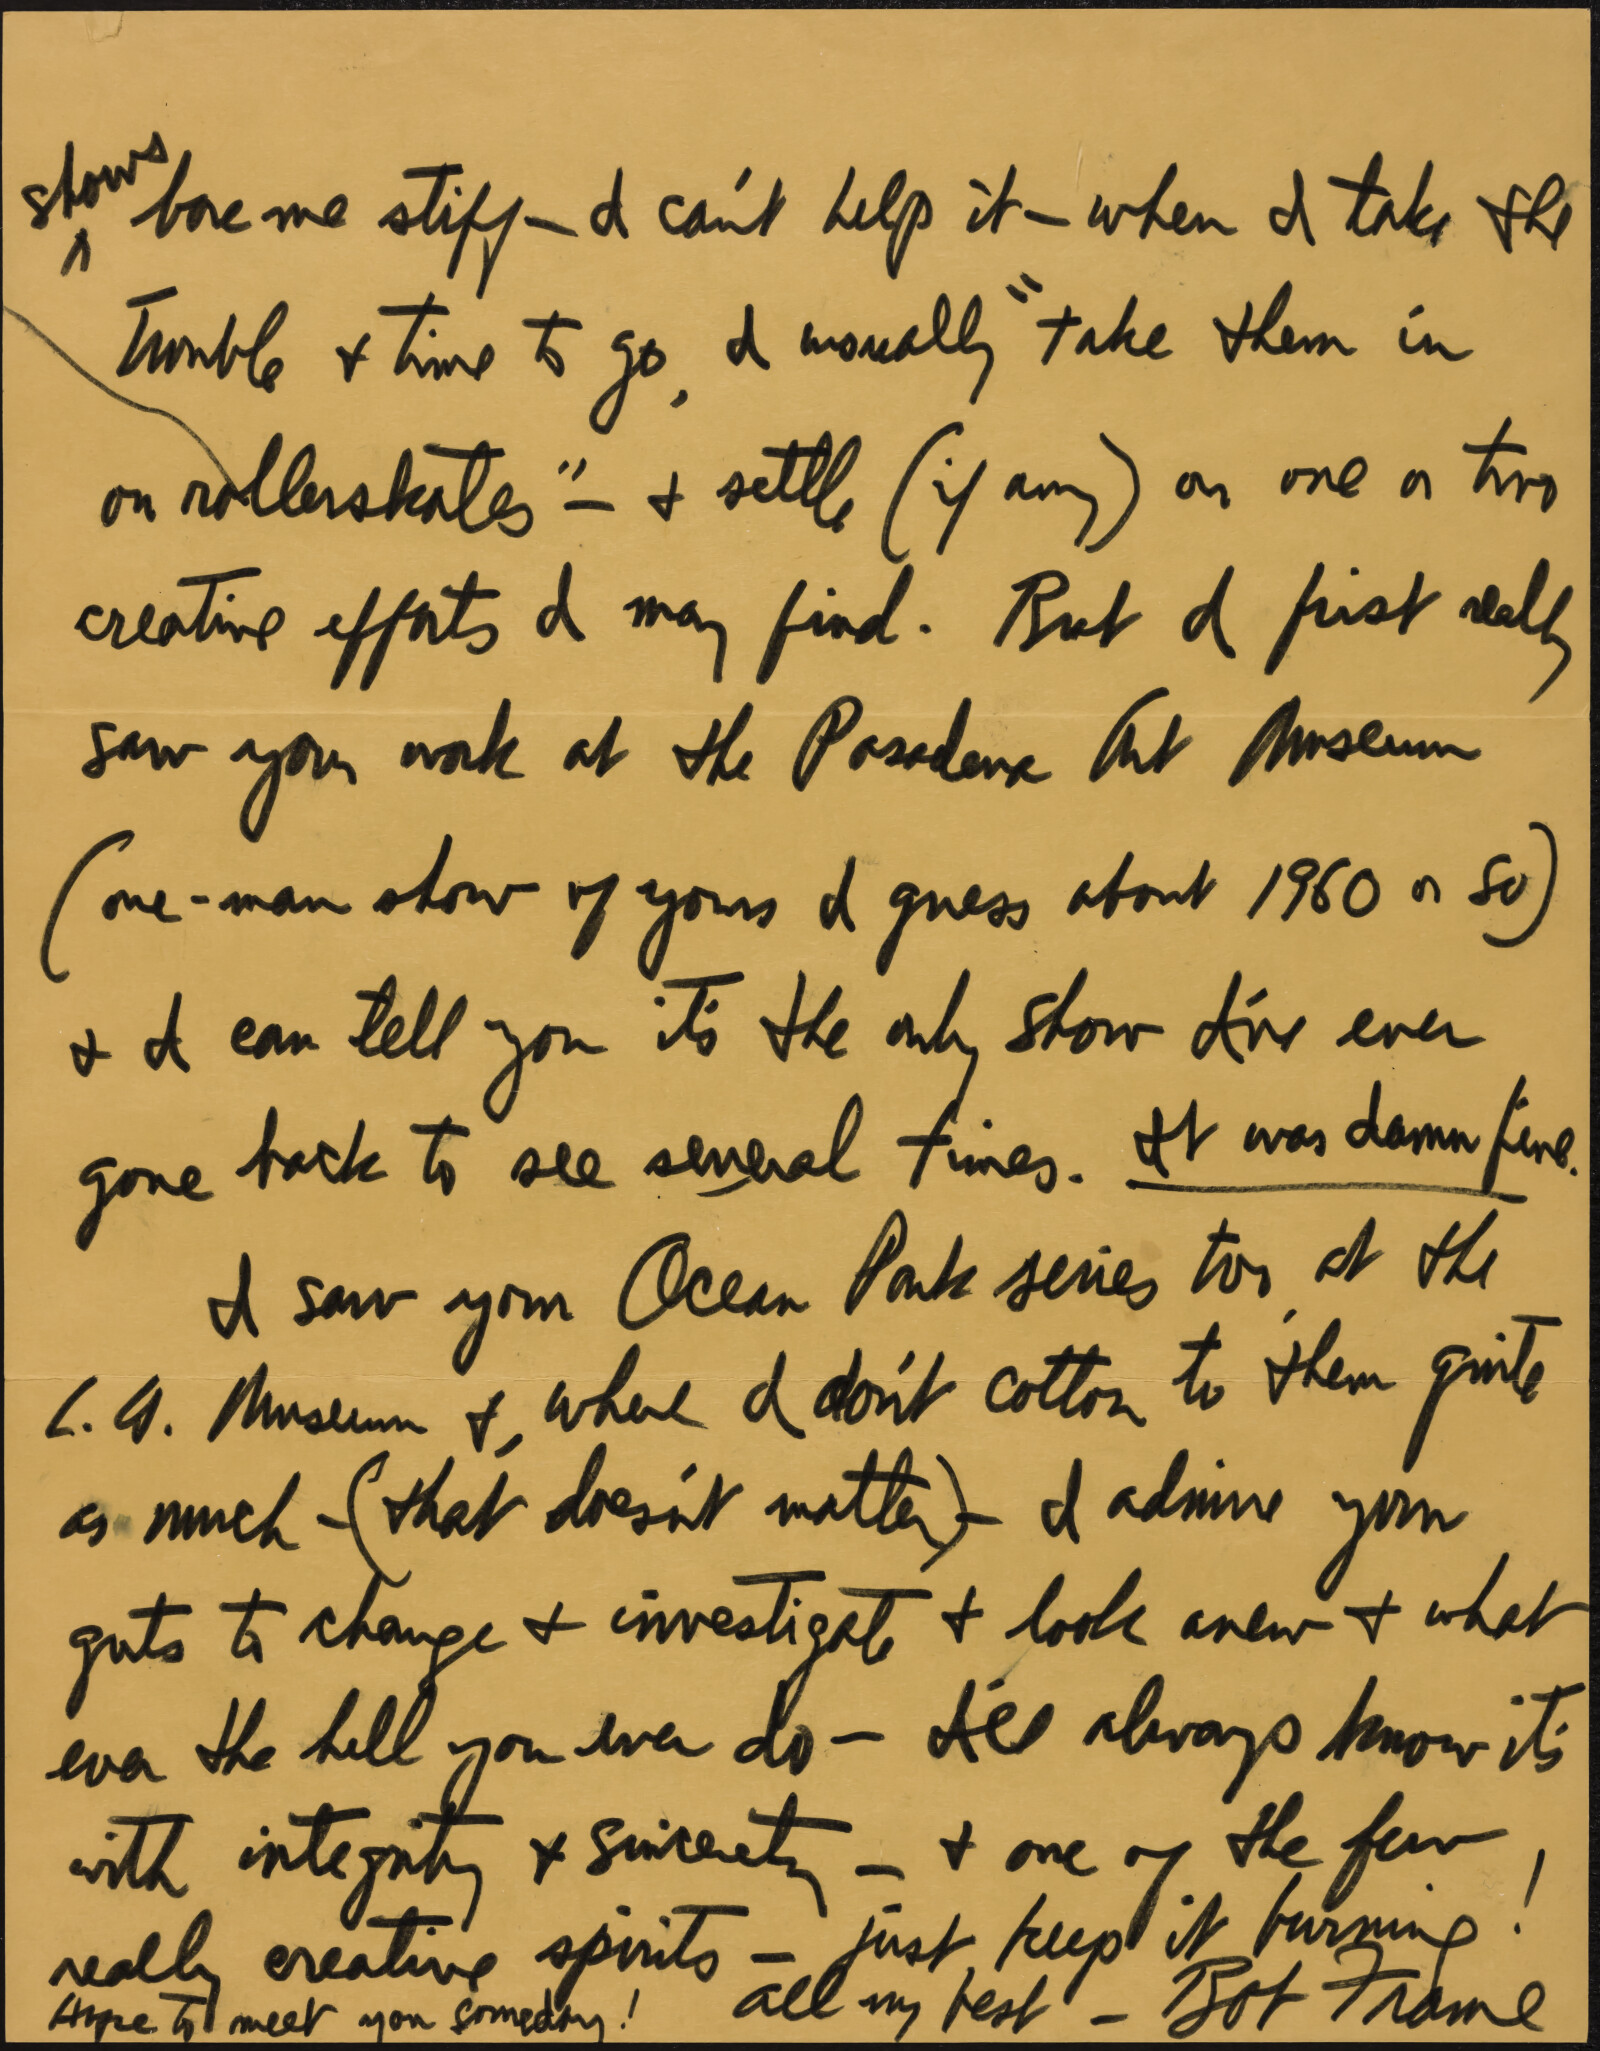 shows
bore me stiff – I can't help it – when I take the
trouble & time to go, I usually "take them in
on rollerskates" – & settle (if any) on one or two
creative efforts I may find. But I first really
saw your work at the Pasadena Art Museum
(one-man show of yours I guess about 1960 or so)
& I can tell you it's the only show I've ever
gone back to see several times. It was damn fine.
I saw your Ocean Park series too, at the
L.A. Museum &, where I don't cotton to them quite
as much – (that doesn't matter) – I admire your
guts to change & investigate & look anew & what
ever the hell you ever do – I'll always know it's
with integrity & sincerety – & one of the few
really creative spirits – just keep it burning!
Hope to meet you someday! All my best – Bob Frame